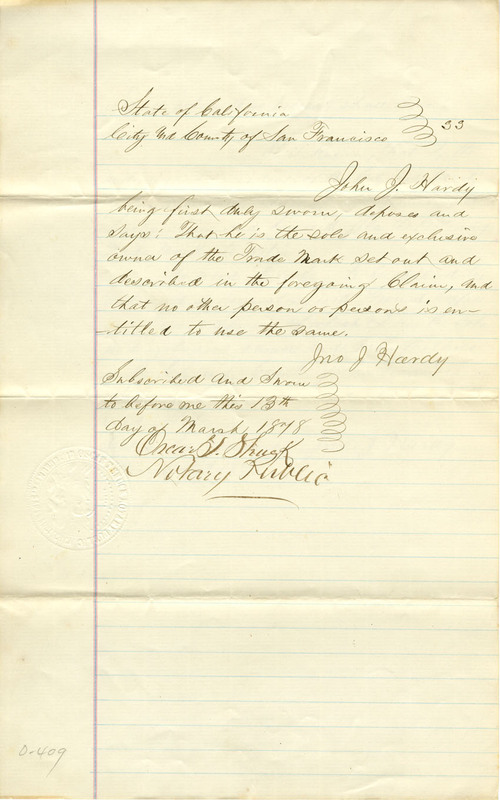 State of California
City and County of San Francisco } SS
John J. Hardy
being first duly sworn, deposes and
says: That he is the sole and exclusive
owner of the Trade Mark set out and
described in the foregoing Claim, and
that no other person or persons is en-
-titled to use the same.
Jno J Hardy
Subscribed and Sworn
to before me this 13th
day of March, 1878
Oscar T. Shuck
Notary Public
O-409